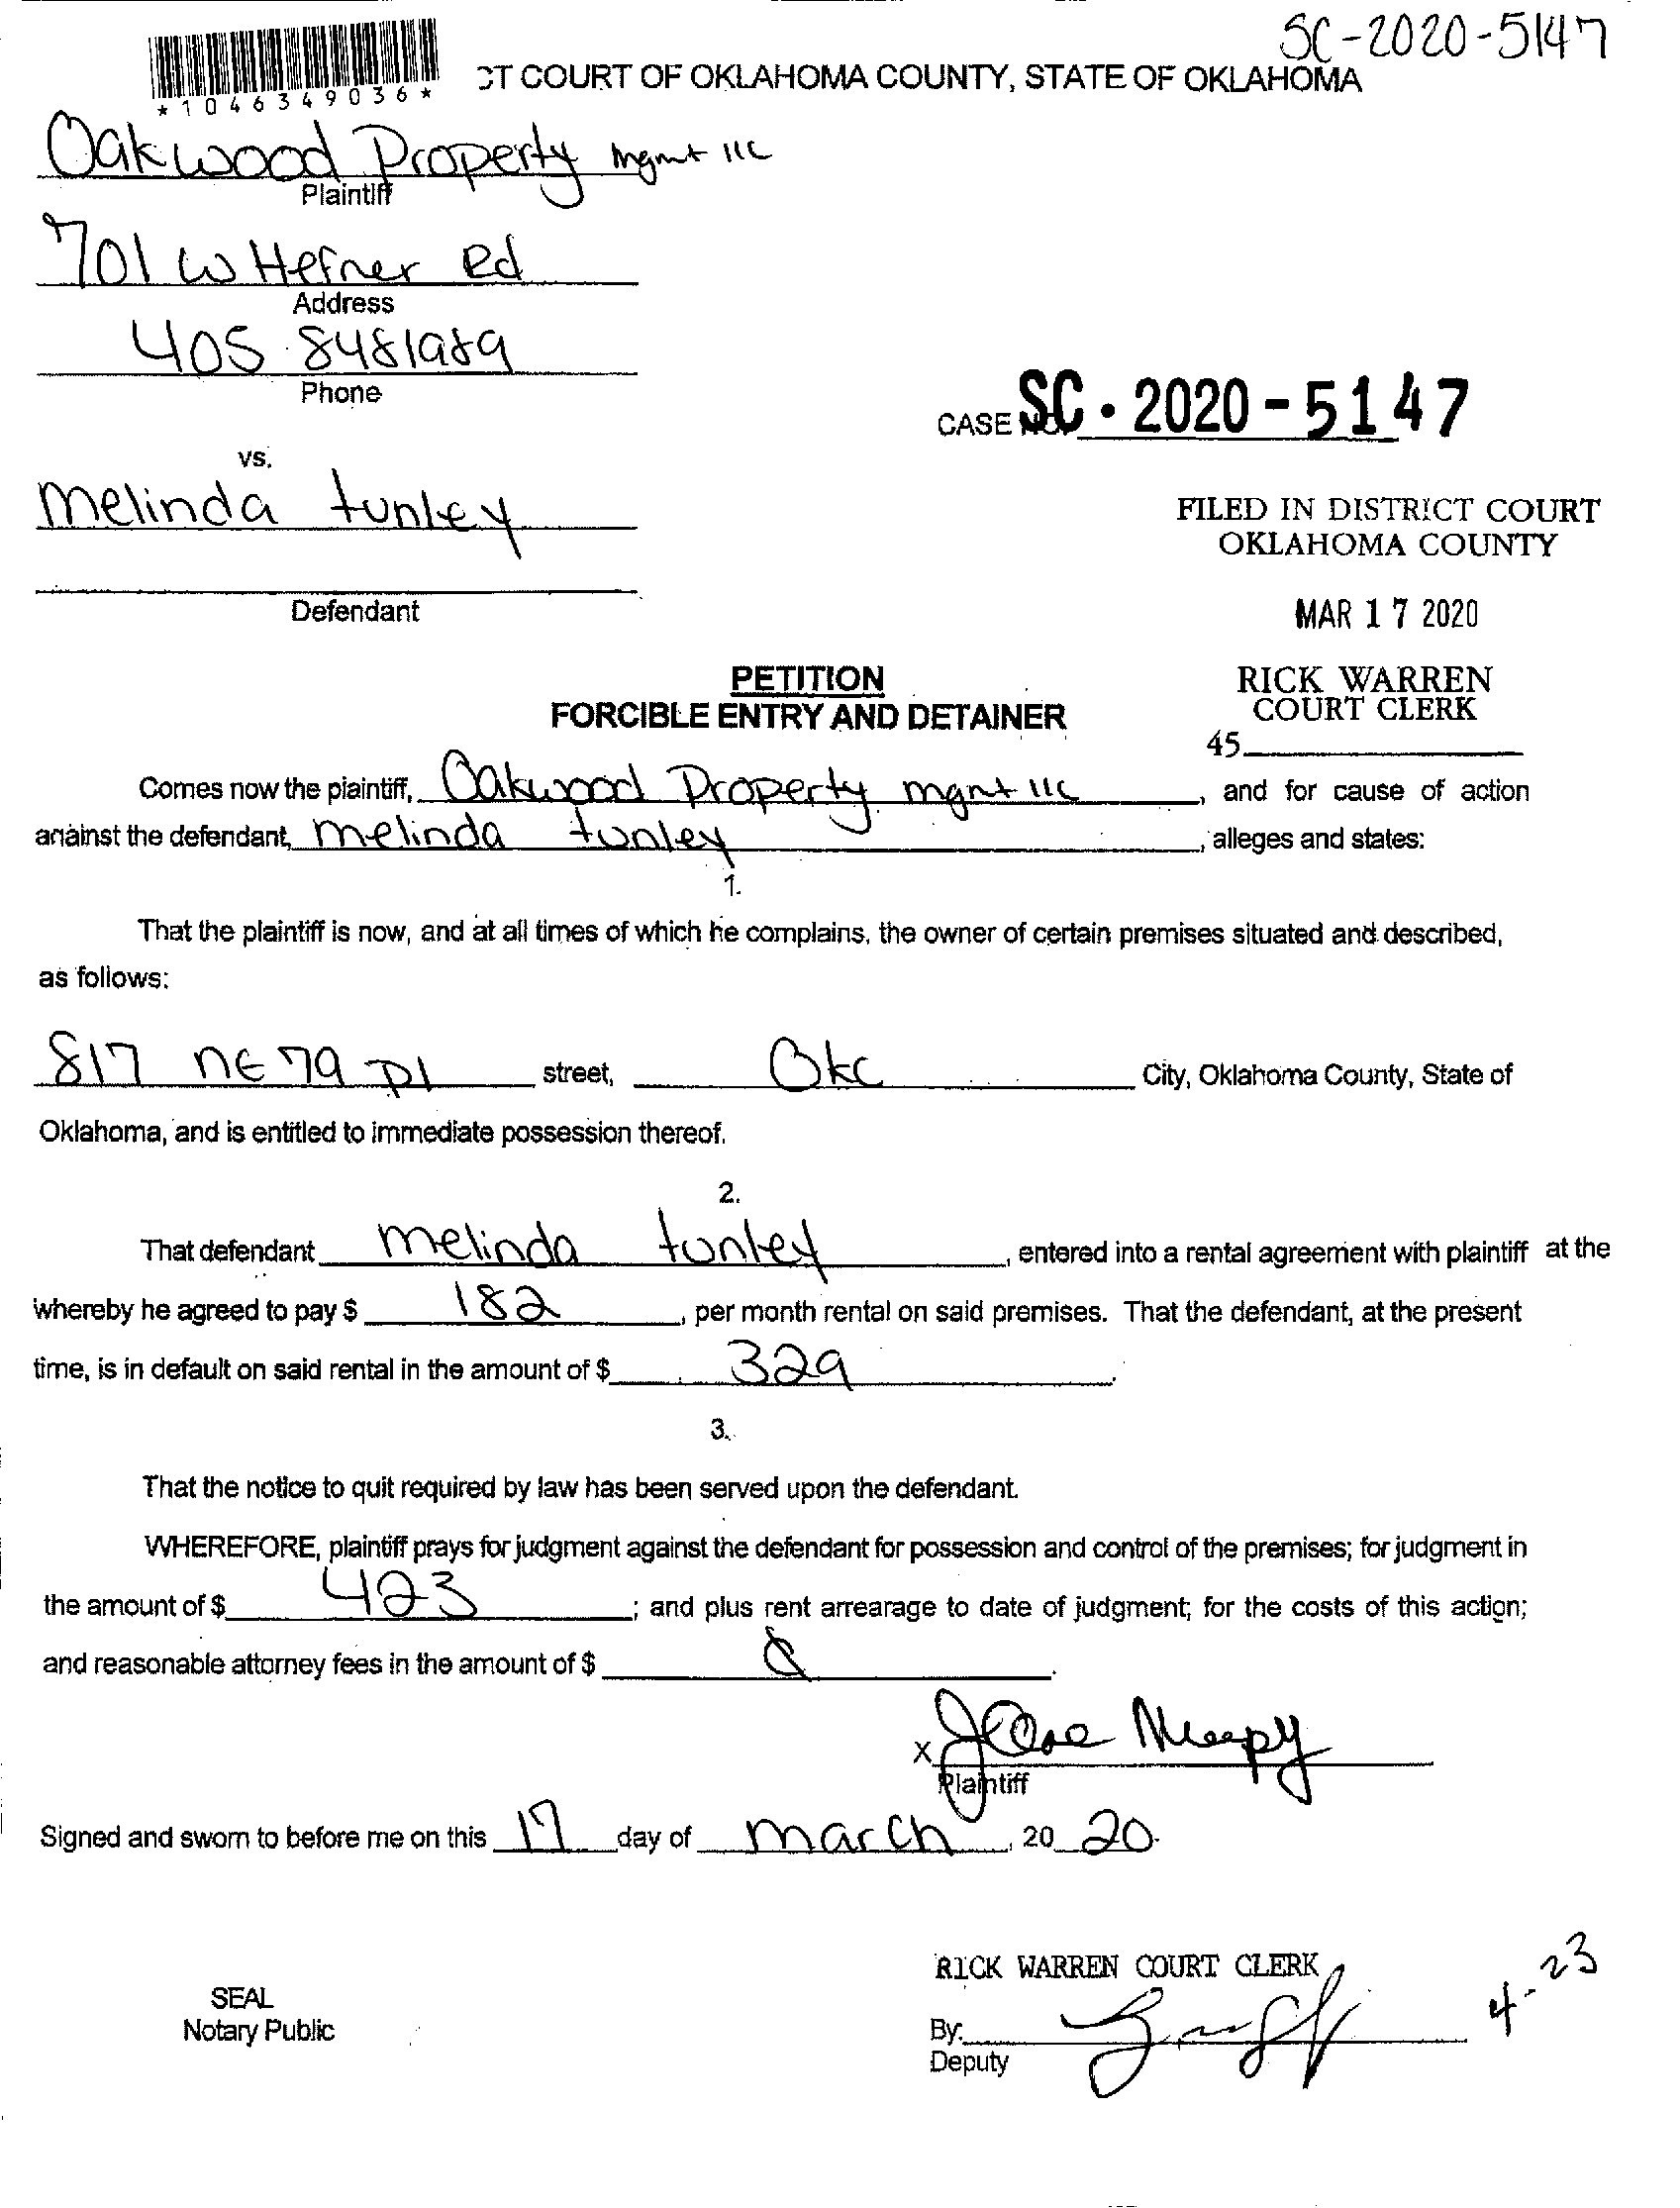 SC-2020-5147
*1046349036*
CT COURT OF OKLAHOMA COUNTY, STATE OF OKLAHOMA
Oakwood Property mgmt llc
Plaintiff
701 W Hefner Rd
Address
405 8481989
Phone
CASE NO. SC - 2020 - 5147
vs.
melinda tunley
FILED IN DISTRICT COURT
OKLAHOMA COUNTY
Defendant
MAR 17 2020
PETITION
FORCIBLE ENTRY AND DETAINER
RICK WARREN
COURT CLERK
45
Comes now the plaintiff, Oakwood Property mgnt llc, and for cause of action
against the defendant, melinda tunley, alleges and states:
1.
That the plaintiff is now, and at all times of which he complains, the owner of certain premises situated and described,
as follows:
817 NE 79 Pl street, Okc City, Oklahoma County, State of
Oklahoma, and is entitled to immediate possession thereof.
2.
That defendant melinda tunley, entered into a rental agreement with plaintiff at the
whereby he agreed to pay $ 182, per month rental on said premises. That the defendant, at the present
time, is in default on said rental in the amount of $ 329.
3.
That the notice to quit required by law has been served upon the defendant.
WHEREFORE, plaintiff prays for judgment against the defendant for possession and control of the premises; for judgment in
the amount of $ 423; and plus rent arrearage to date of judgment; for the costs of this action;
and reasonable attorney fees in the amount of $
x
Plaintiff
Signed and sworn to before me on this 17 day of march, 20 20.
RICK WARREN COURT CLERK
4-23
SEAL
Notary Public
By:
Deputy